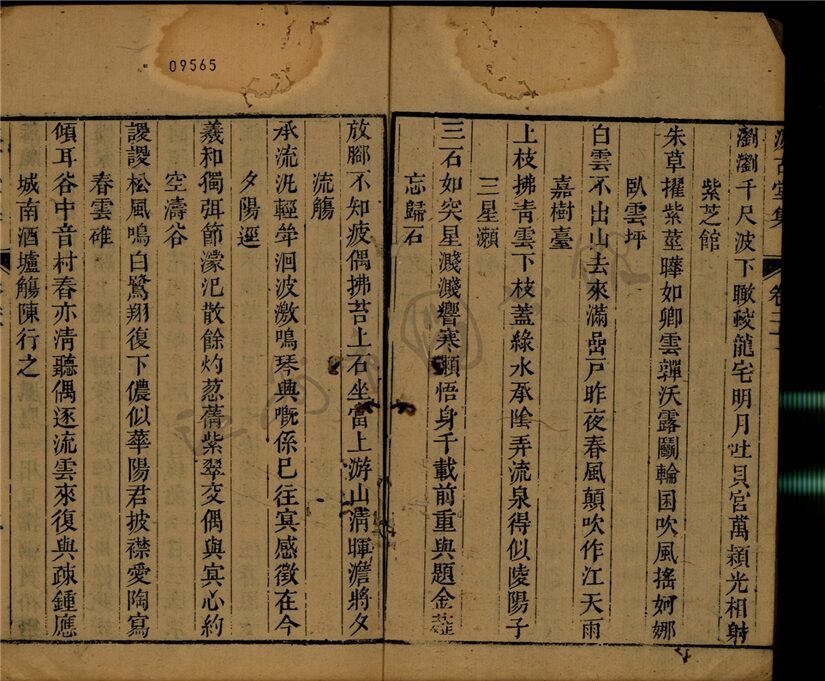 瀏瀏千尺波下瞰菱龍宅明月吐貝宮萬頴光相射
紫芝館
朱草擢紫莖曄如卿雲嚲沃露鬭輪囷吹風搖婀娜
臥雲坪
白雲不出山去來滿嵒戸昨夜春風顛吹作江天雨
嘉樹臺
上枝拂青雲下枝蓋綠水承陰弄流泉得似陵陽子
三星瀬
三石如突星濺濺響寒瀬悟身千載前重與題金薤
忘歸石
放腳不知疲偶拂苔上石坐富上游山清暉澹將夕
流觴
承流汎輕斝洄波激鳴琴興嘅係已往寘感徵在今
夕陽逕
羲和獨弭節濛汜散餘灼蔥蒨紫翠交偶與寘心約
空濤谷
謖謖松風鳴白鷺翔復下儂似華陽君披襟愛陶寫
春雲碓
傾耳谷中音村舂亦清聽偶逐流雲來復與疎鍾應
城南酒壚觴陳行之
09565